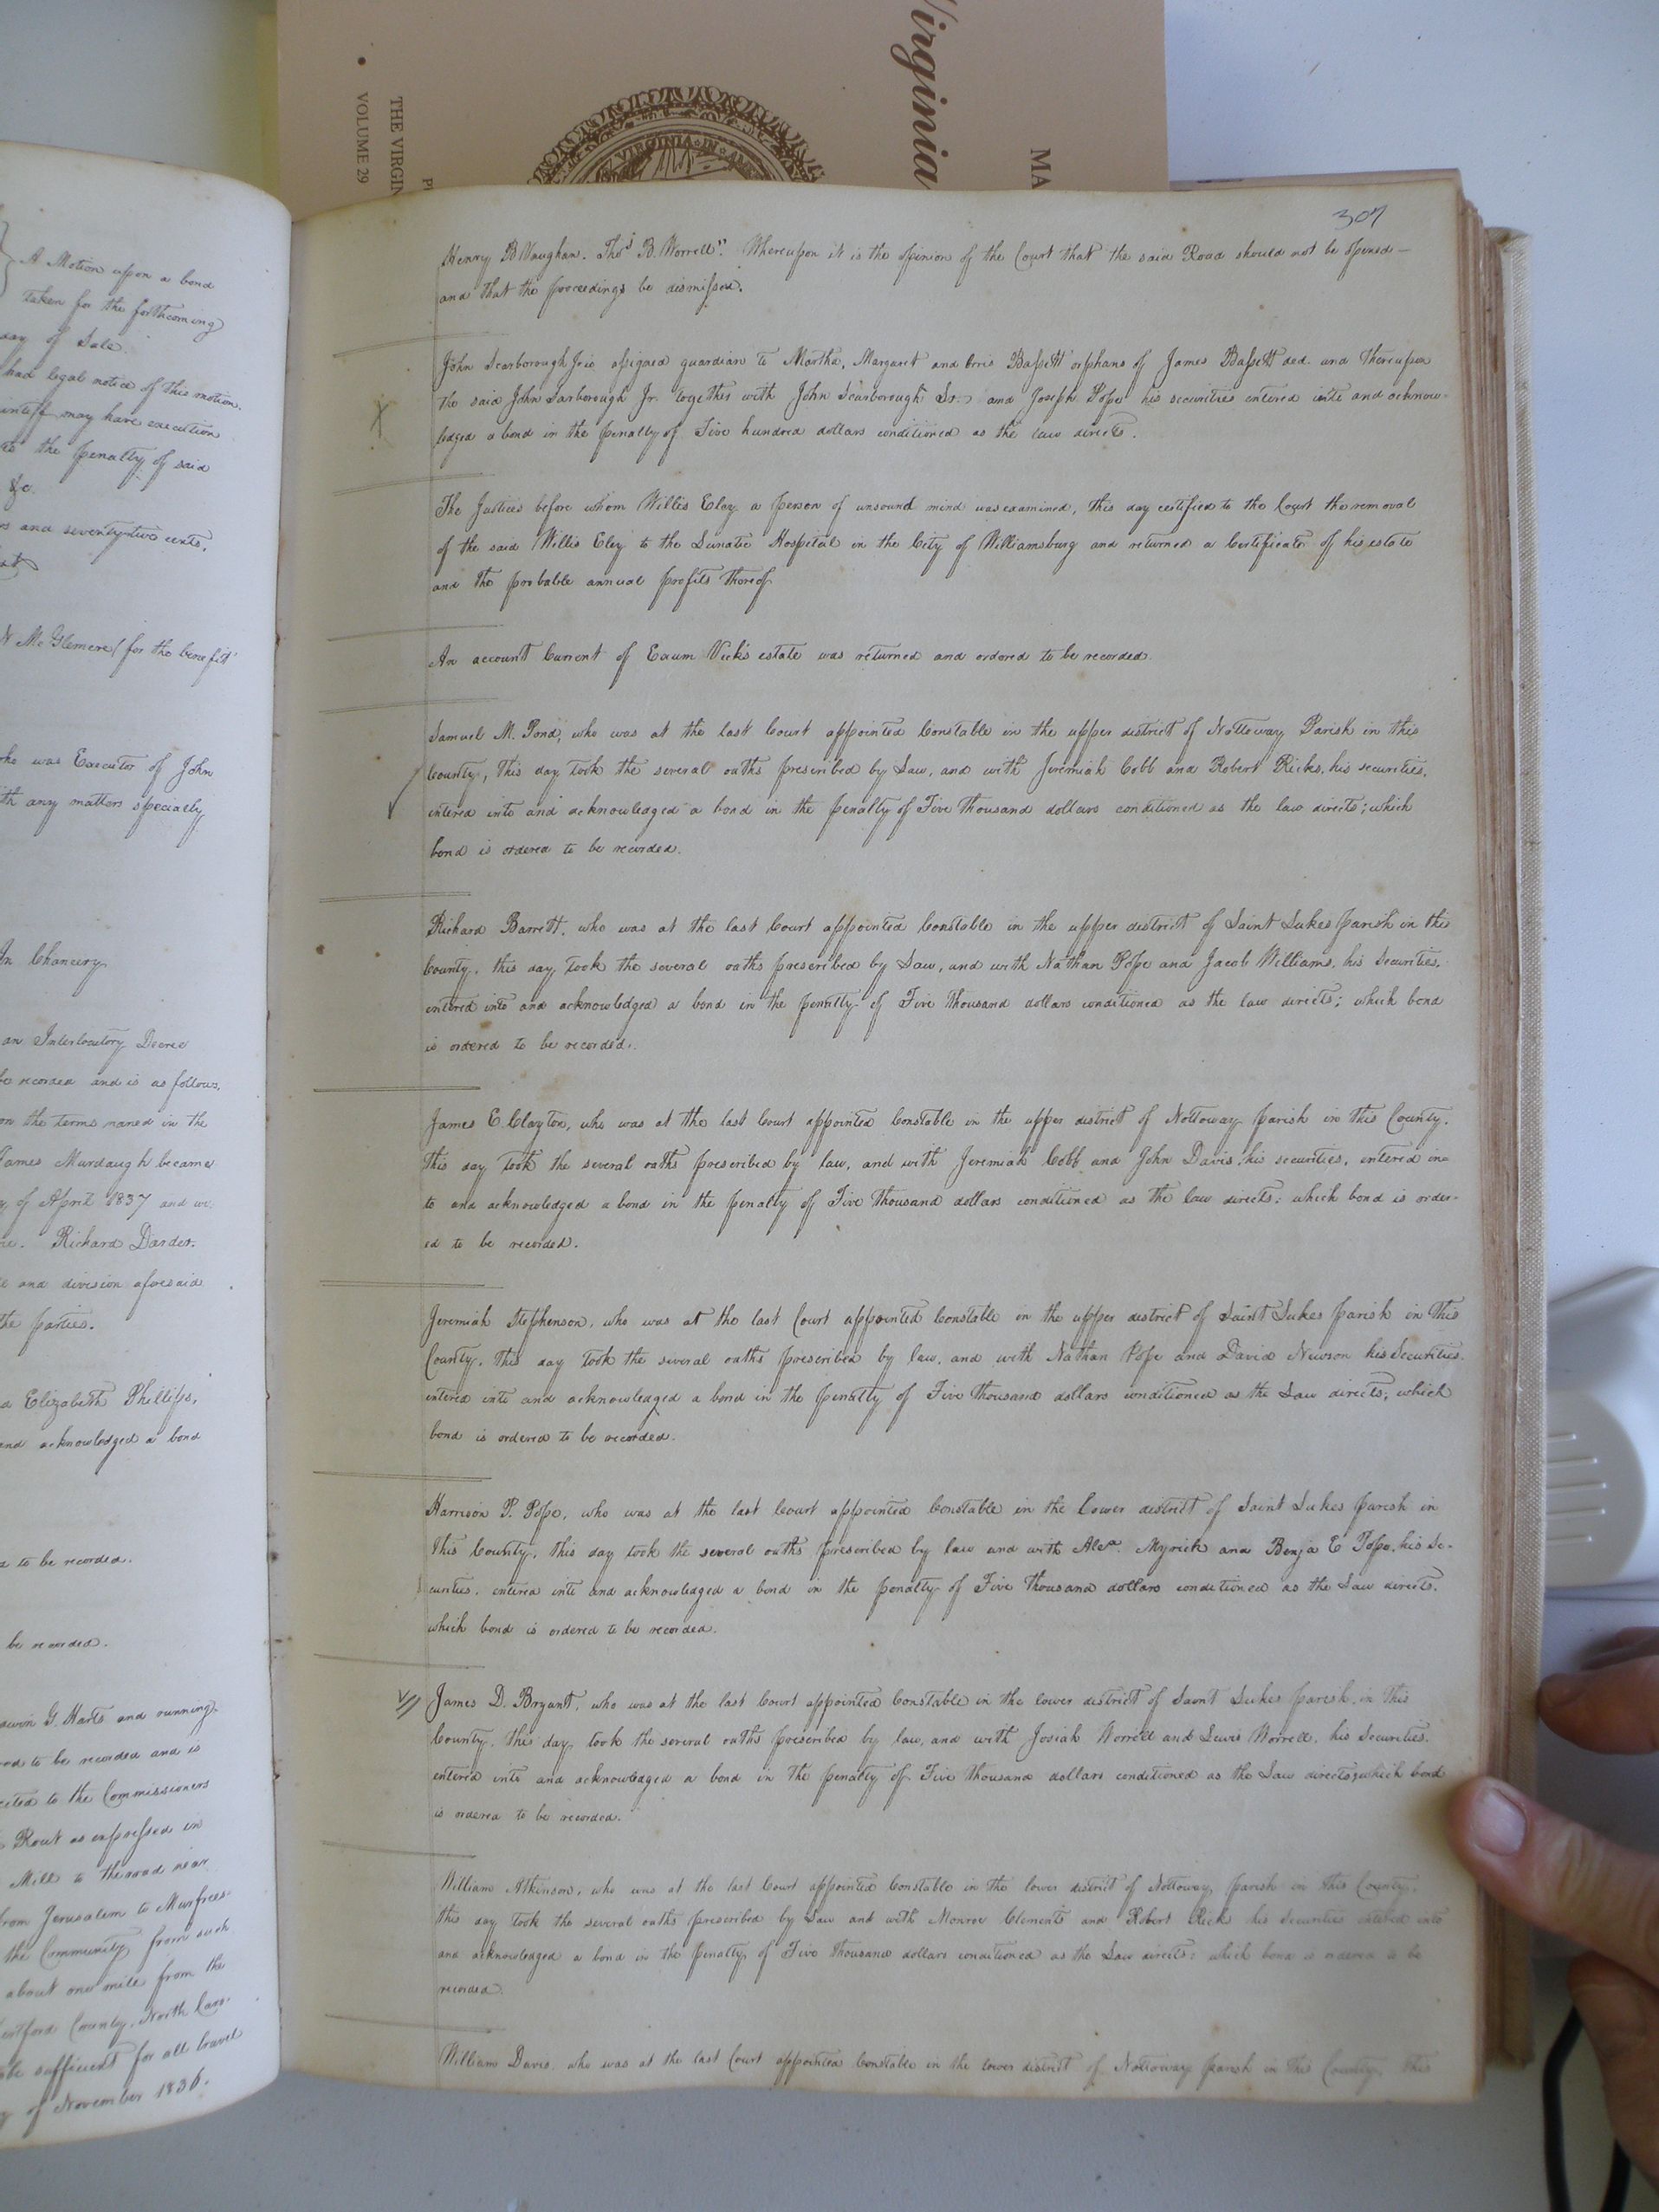 Virginia
MA
THE VIRGIN
VOLUME 29
VIRGINIA IN
A Motion upon a bond
taken for the forthcoming
day of Sale.
had legal notice of this motion.
intiff may have execution
the penalty of said
&c.
and seventy two cents,
Mc Glemere (for the benefit
who was Executor of John
ith any matters specially
In Chancery
an Interlocutory Decree
be recorded and is as follows,
on the terms named in the
James Murdaugh became
of April 1837 and
Richard Darden.
and division aforesaid
the parties.
Elizabeth Phillips,
and acknowledged a bond
to be recorded.
be recorded.
G. Harts and running
to be recorded and is
to the Commissioners
Rout as expressed in
Mill to the road near
from Jerusalem to Murfrees-
the Community from such
about one mile from the
County, North Caro-
sufficient for all travel
of November 1836.
307
Henry B Vaughan. Thos B. Worrell". Whereupon it is the opinion of the Court that the said Road should not be opened —
and that the proceedings be dismissed.
John Scarborough Jr is assigned guardian to Martha, Margaret and Bassett orphans of James Bassett ded. and thereupon
the said John Sarborough Jr. together with John Scarborough Sr. and Joseph Pope his securities entered into and acknow-
ledged a bond in the penalty of Five hundred dollars conditioned as the law directs.
The Justices before whom Willis Eley a person of unsound mind was examined, this day certified to the Court the removal
of the said Willis Eley to the Lunatic Hospital in the City of Williamsburg and returned a Certificate of his estate
and the probable annual profits thereof.
An account Current of Exum Vick's estate was returned and ordered to be recorded.
Samuel M. Pond, who was at the last Court appointed Constable in the upper district of Nottoway Parish in this
County, this day took the several oaths prescribed by Law, and with Jeremiah Cobb and Robert Ricks, his securities,
entered into and acknowledged a bond in the penalty of Five thousand dollars conditioned as the law directs; which
bond is ordered to be recorded.
Richard Barrett, who was at the last Court appointed Constable in the upper district of Saint Lukes parish in this
County, this day took the several oaths prescribed by Law, and with Nathan Pope and Jacob Williams, his Securities,
entered into and acknowledged a bond in the penalty of Five thousand dollars conditioned as the law directs; which bond
is ordered to be recorded.
James E. Clayton, who was at the last Court appointed Constable in the upper district of Nottoway parish in this County,
this day took the several oaths prescribed by law, and with Jeremiah Cobb and John Davis, his securities, entered in=
to and acknowledged a bond in the penalty of Five thousand dollars conditioned as the law directs: which bond is order-
ed to be recorded.
Jeremiah Stephenson, who was at the last Court appointed Constable in the upper district of Saint Lukes parish in this
County, this day took the several oaths prescribed by law, and with Nathan Pope and David Newsom his Securities,
entered into and acknowledged a bond in the penalty of Five thousand dollars conditioned as the Law directs; which
bond is ordered to be recorded.
Harrison P. Pope, who was at the last Court appointed Constable in the Lower district of Saint Lukes parish in
this County, this day took the several oaths prescribed by law and with Alexr. Myrick and Benja E Pope, his Se-
curities, entered into and acknowledged a bond in the penalty of Five thousand dollars conditioned as the Law directs,
which bond is ordered to be recorded.
James D. Bryant, who was at the last Court appointed Constable in the lower district of Saint Lukes parish, in this
County, this day took the several oaths prescribed by law, and with Josiah Worrell and Lewis Worrell, his Securities,
entered into and acknowledged a bond in the penalty of Five thousand dollars conditioned as the Law directs; which bond
is ordered to be recorded.
William Atkinson, who was at the last Court appointed Constable in the lower district of Nottoway parish in this County,
this day took the several oaths prescribed by Law and with Monroe Clements and Robert Ricks his Securities entered into
and acknowledged a bond in the penalty of Five thousand dollars conditioned as the Law directs: which bond is ordered to be
recorded.
William Davis, who was at the last Court appointed Constable in the lower district of Nottoway parish in this County, this